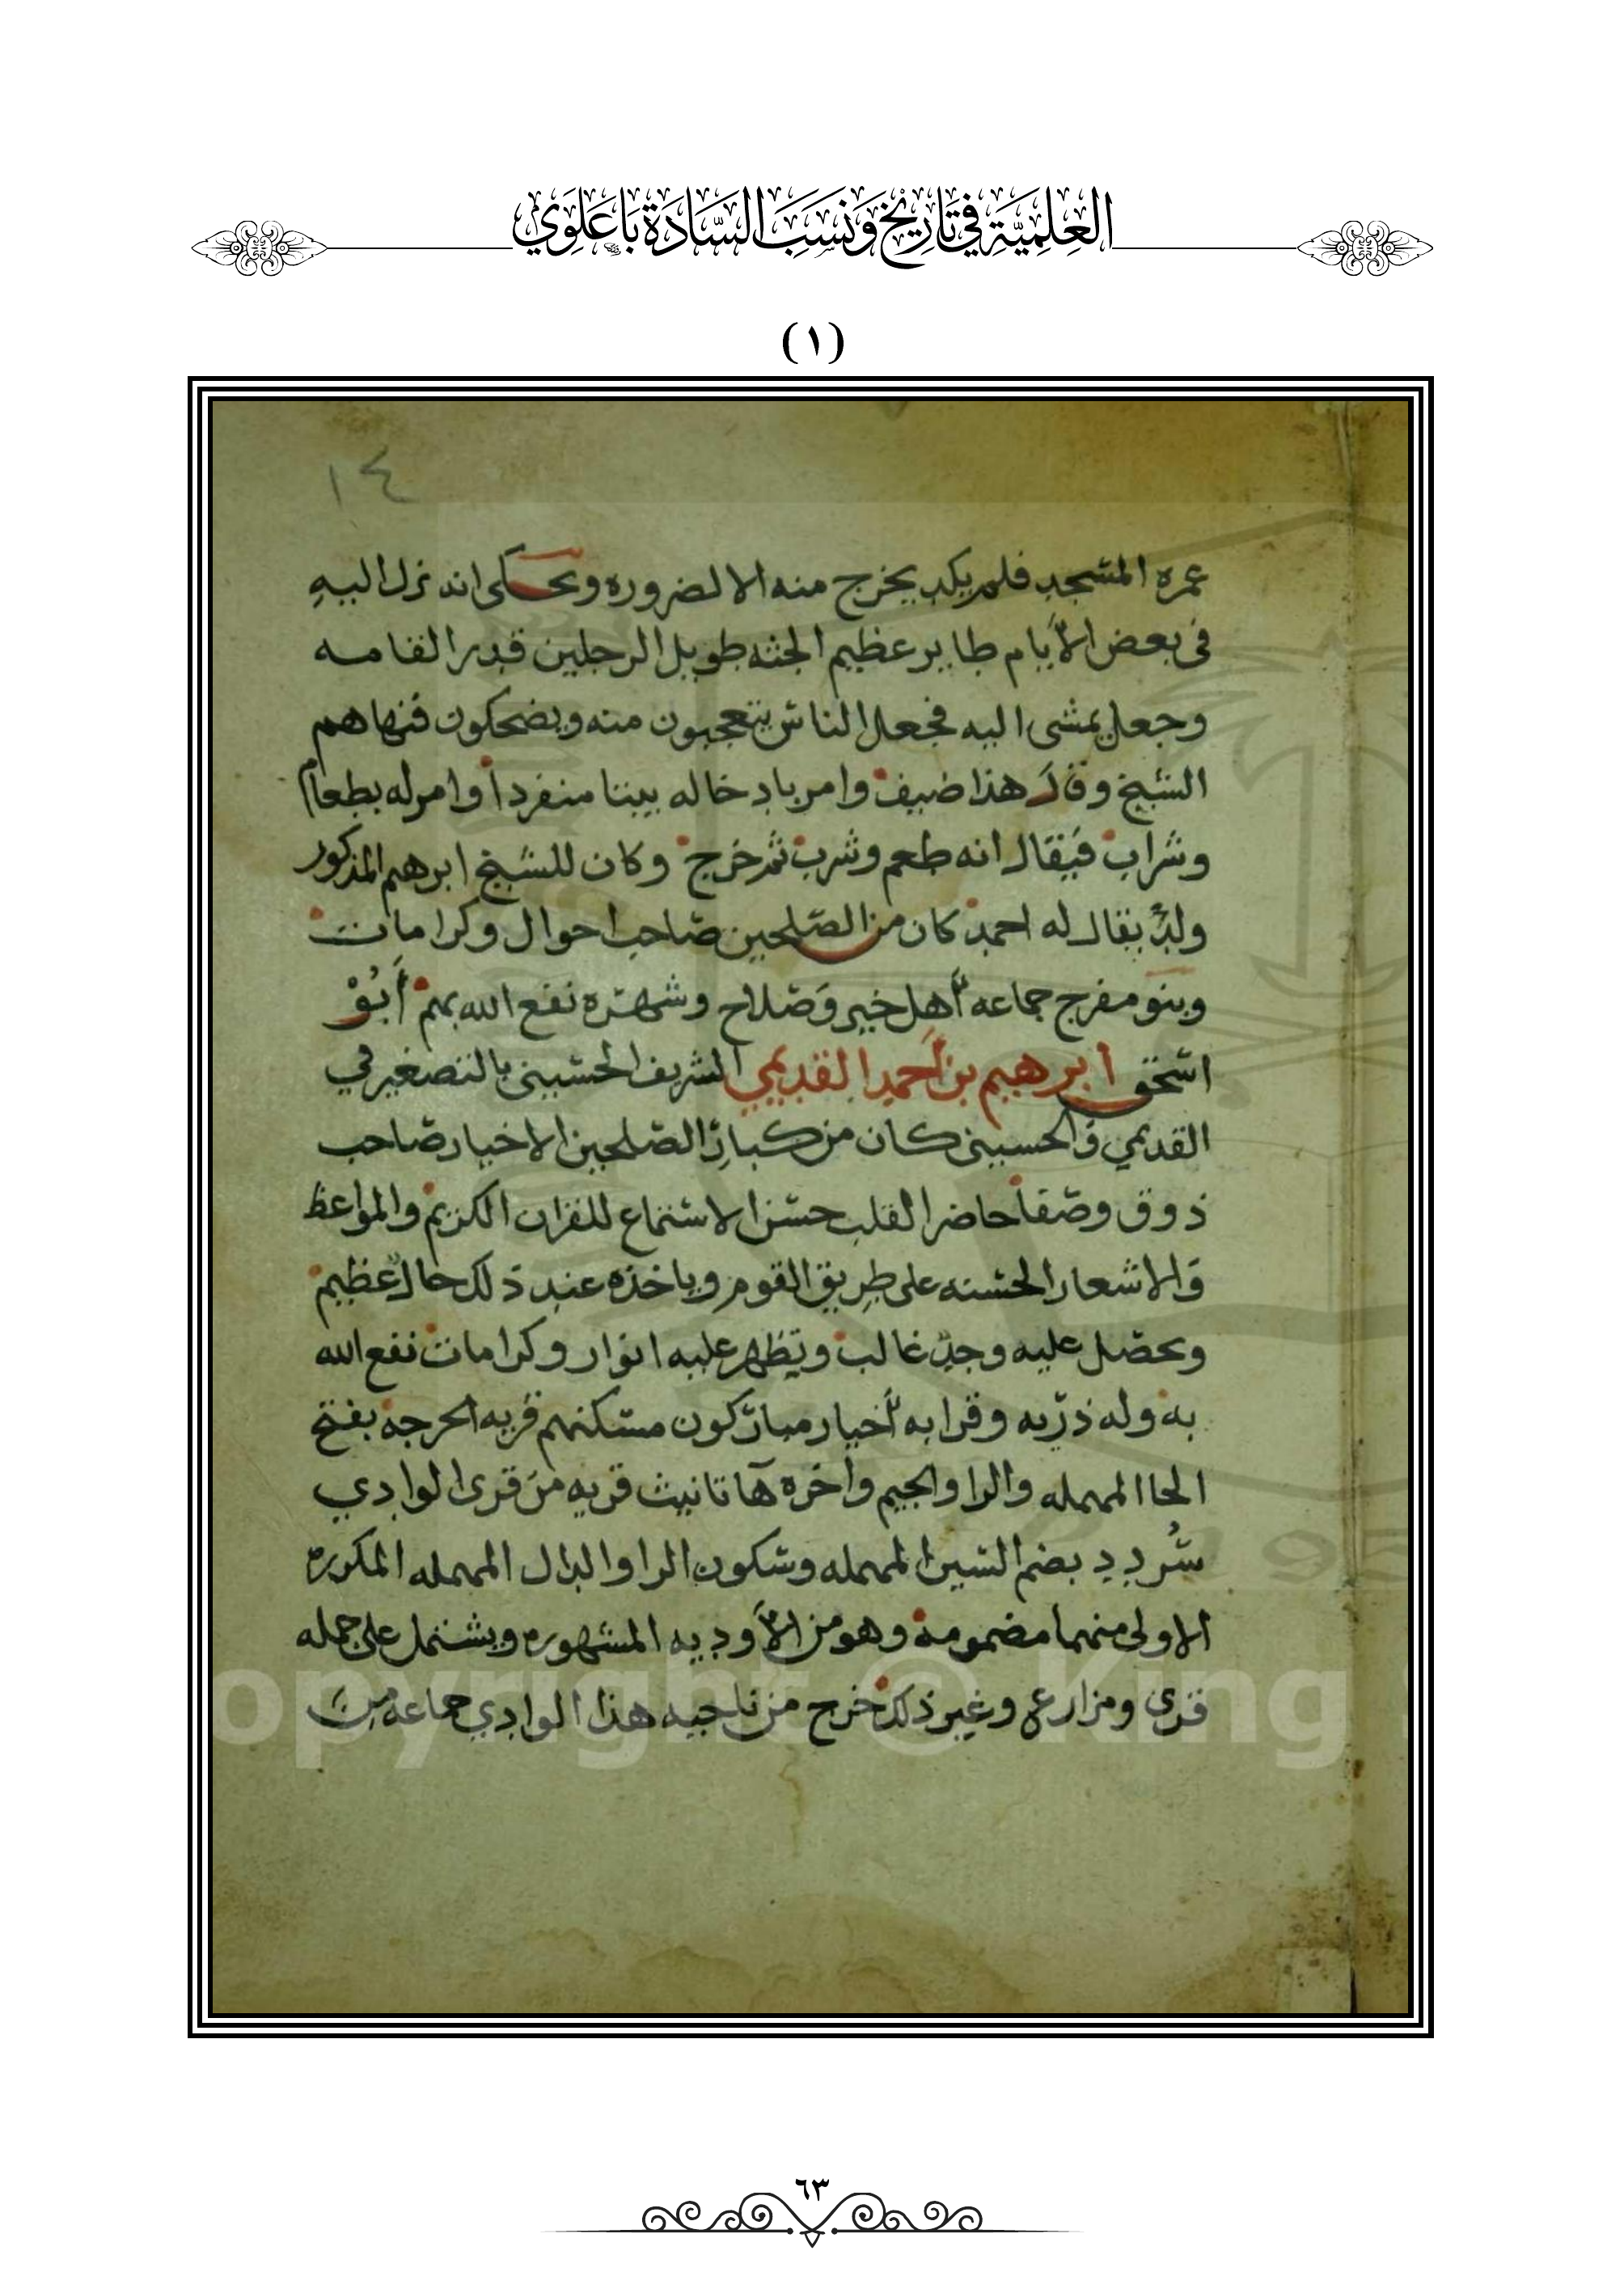 العِلمِيَّةِ فِي تَارِيْخِ وَنَسَبِ السَّادَةِ بَاعَلَوِي
(١)
١٤
عمره المسجد فلم يكد يخرج منه الا لضروره وحكى انه نزل اليه
فى بعض الأيام طاير عظيم الجثه طويل الرجلين قدر القامه
وجعل يمشى اليه فجعل الناس يتعجبون منه ويضحكون فنهاهم
الشيخ وقال هذا ضيف وامر بادخاله بيتا منفردا وامر له بطعام
وشراب فيقال انه طعم وشرب ثم خرج وكان للشيخ ابرهيم المذكور
ولد يقال له احمد كان من الصلحين صاحب احوال وكرامات
وبنو مفرج جماعه أهل خير وصلاح وشهره نفع الله بهم أبُوْ
اسحق ابرهيم بن أحمد القديمي الشريف الحسينى بالتصغير في
القديمي والحسينى كان من كبار الصلحين الاخيار صاحب
ذوق وصفا حاضر القلب حسن الاستماع للقران الكريم والمواعظ
والاشعار الحسنه على طريق القوم وياخذه عند ذلك حال عظيم
ويحصل عليه وجد غالب ويظهر عليه انوار وكرامات نفع الله
به وله ذريه وقرابه أخيار مباركون مسكنهم قريه الحرجه بفتح
الحا المهمله والرا والجيم واخره ها تانيث قريه من قرى الوادي
سُردد بضم السين المهمله وسكون الرا والدال المهمله المكرره
الاولى منهما مضمومه وهو من الأوديه المشهوره ويشتمل على جمله
قرى ومزارع وغير ذلك خرج من ناحيه هذا الوادي جماعه من
opyright © King
٦٣